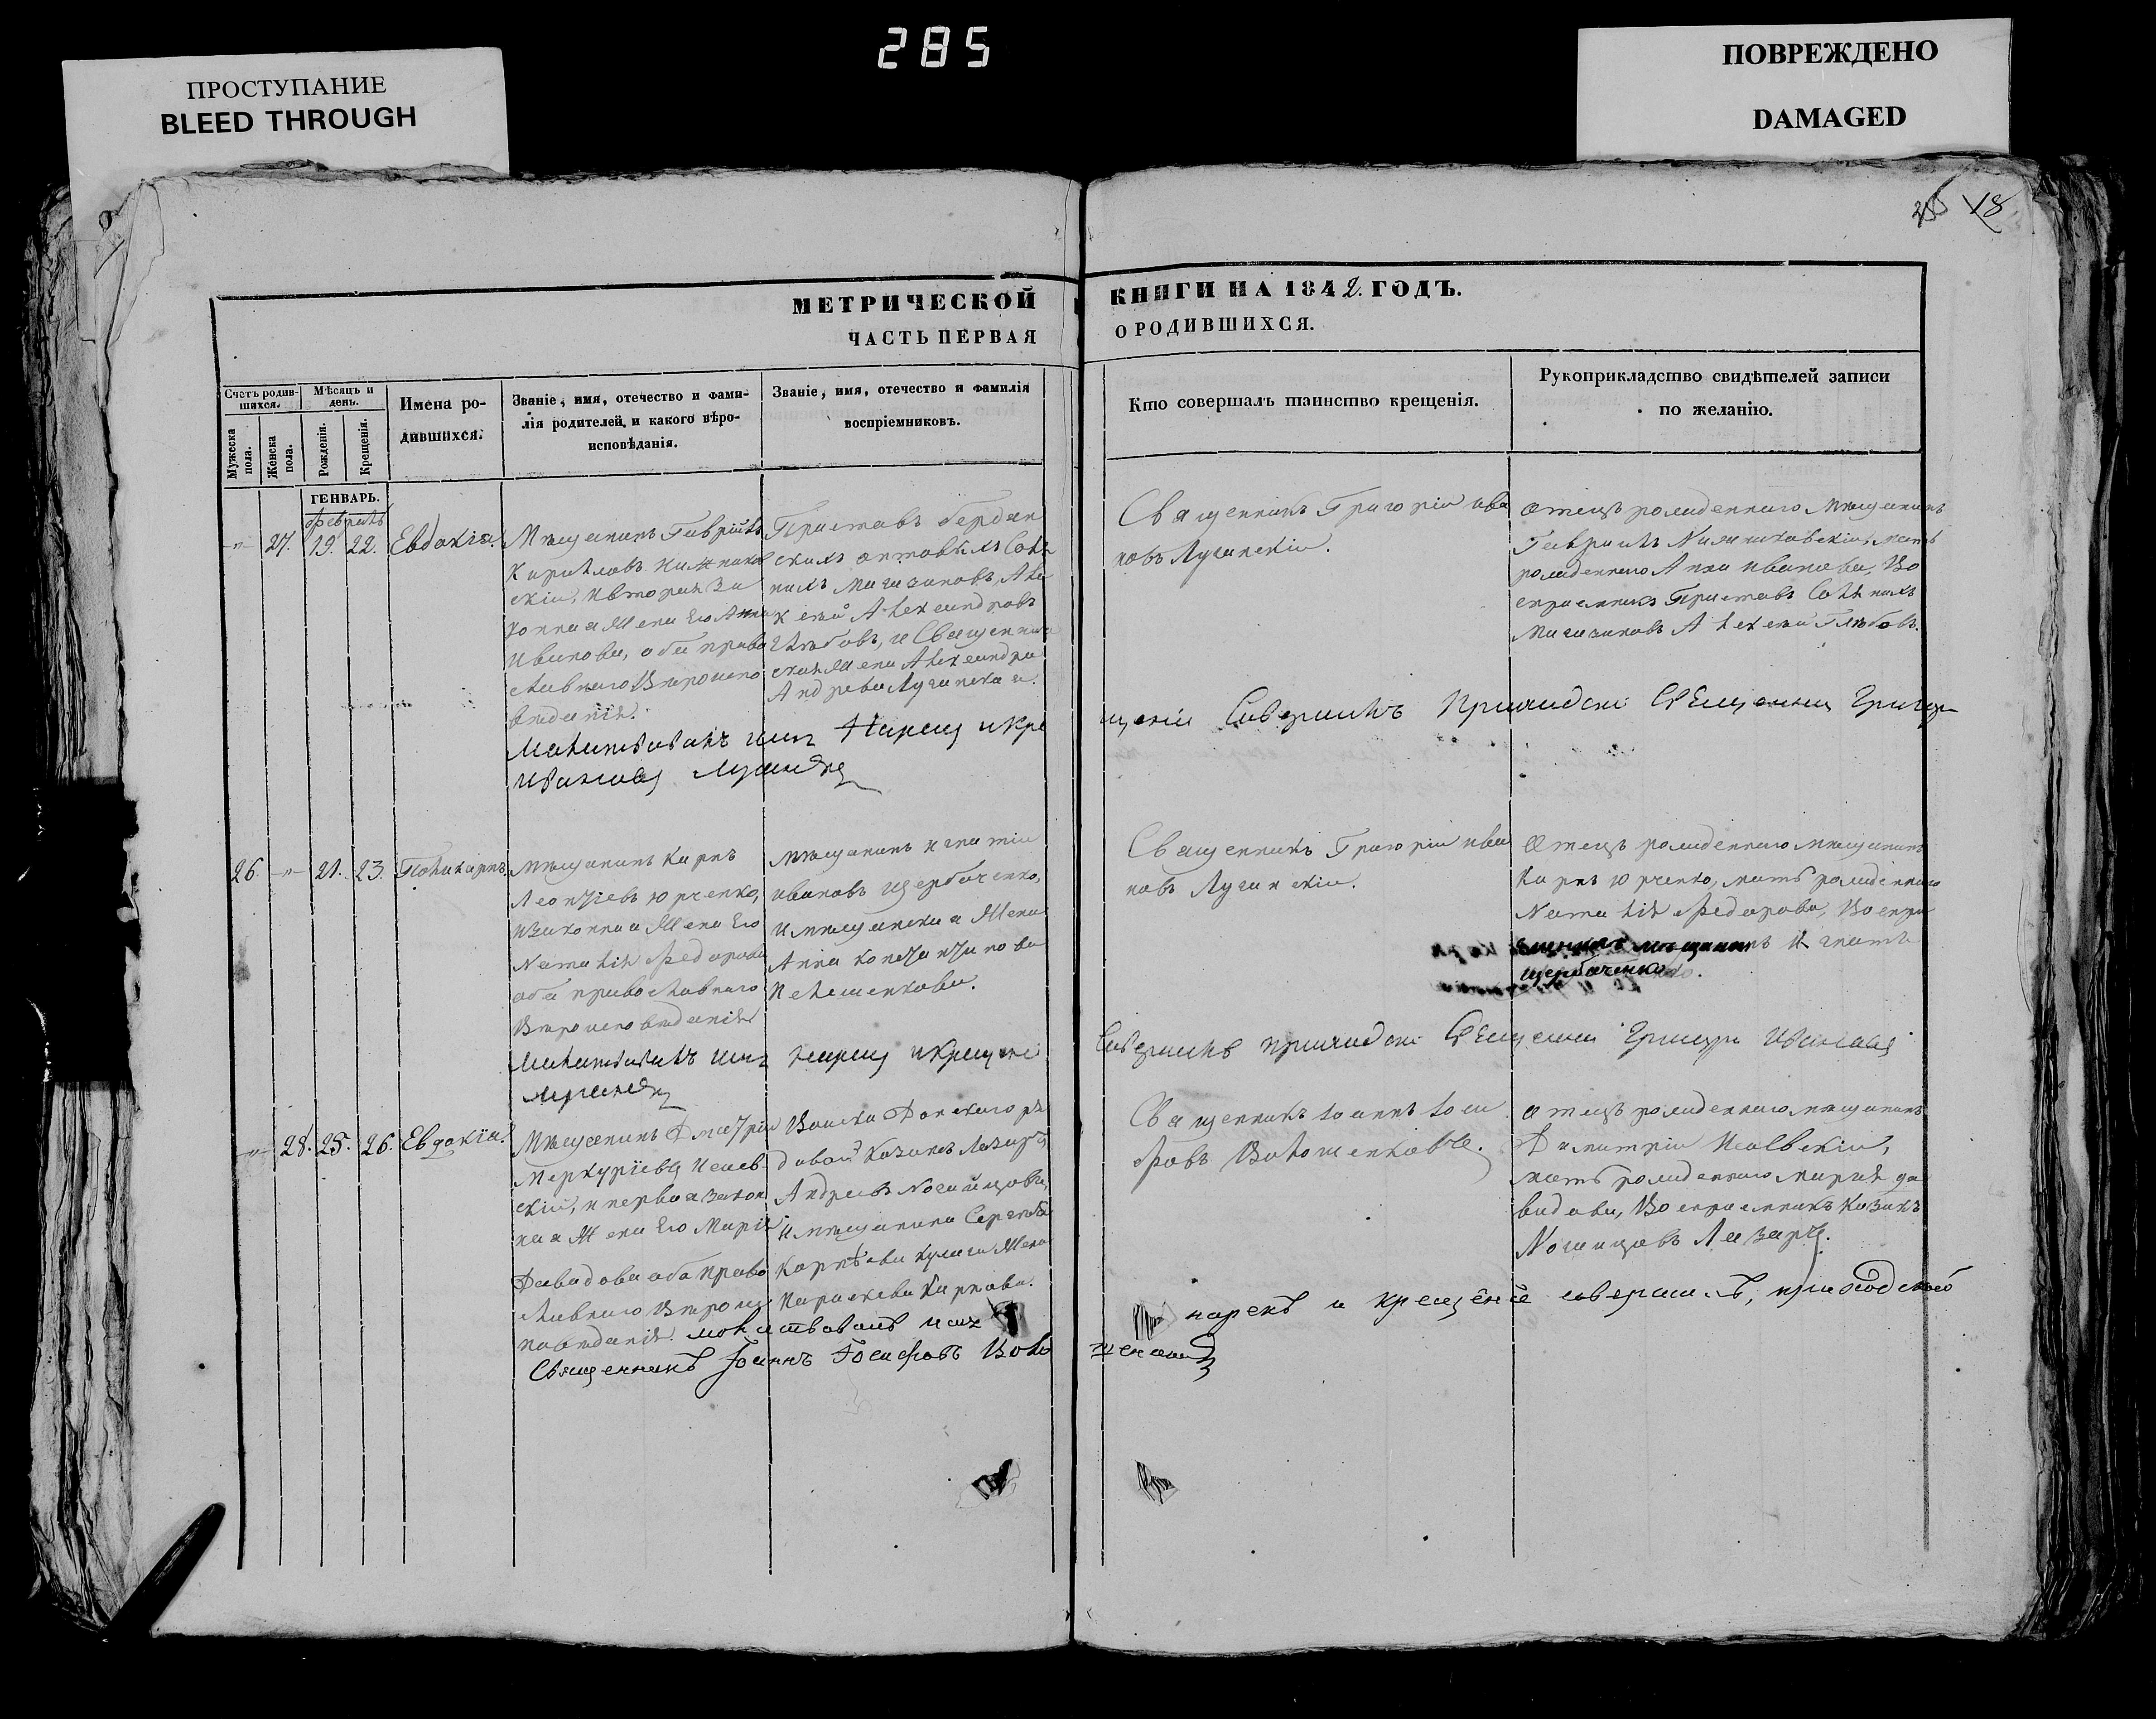 285
ПРОСТУПАНИЕ
BLEED THROUGH
ПОВРЕЖДЕНО
DAMAGED
18
МЕТРИЧЕСКОЙ
ЧАСТЬ ПЕРВАЯ
КНИГИ НА 1842. ГОДЪ.
О РОДИВШИХСЯ.
Счетъ родив-
шихся.
Мужеска
пола.
Женска
пола.
Мѣсяцъ и
день.
Рожденія.
Крещенія.
Имена ро-
дившихся.
Званіе, имя, отечество и фами-
лія родителей, и какого вѣро-
исповѣданія.
Званіе, имя, отечество и фамилія
воспріемниковъ.
Кто совершалъ таинство крещенія.
Рукоприкладство свидѣтелей записи
по желанію.
ГЕНВАРЬ.
февраль
-"- 27. 19. 22. Евдокія.
Мѣщанинъ Гаврiилъ
Кириловъ
скій, и вторая за
конная жена его Анна
Иванова, оба право
славнаго вѣроиспо
вѣданія.
Приставъ Бердян
скихъ оптовыхъ Соля
ныхъ магазиновъ, Але
ксѣй Александровъ
Глѣбовъ, и Священниче
ская жена Александра
Андрева Лучинская.
Священникъ Григорій Ива
новъ Лучинскій.
Отецъ рожденнаго мѣщанинъ
Гавриилъ мать
рожденнаго Анна Иванова, Во
спріемникъ Приставъ Соляныхъ
магазиновъ Алексѣй Глѣбовъ.
Молитвовалъ имя Нарекъ и кре
щеніе Совершилъ Приходскій Священникъ Григорій
Ивановъ Лучинскій
26. -"- 21. 23. Поликарпъ.
Мѣщанинъ Карпъ
Леонтіевъ Юрченко,
и законная жена его
Наталія Федорова
оба православнаго
вѣроисповѣданія
Мѣщанинъ Игнатій
Ивановъ Щербаченко,
и мѣщанская жена
Анна Константинова
Пелешенкова.
Священникъ Григорій Ива
новъ Лучинскій.
Отецъ рожденнаго мѣщанинъ
Карпъ Юрченко, мать рожденнаго
Наталія Федорова, Воспрі
емникъ мѣщанинъ Игнатъ
Щербаченко.
Молитвовалъ имя нарекъ и крещеніе
Совершилъ приходскій Священникъ Григорій Ивановъ
Лучинскій
-"- 28. 25. 26. Евдокіа.
Мѣщанинъ Дмитрій
Меркуріевъ Исаев
скій, и первая закон
ная жена его Марія
Давидова оба право
славнаго вѣроис
повѣданія.
Войска Донского ря
довой Козакъ Лазарь
Андреевъ Ногайцовъ,
и мѣщанина Сергѣя
Карпѣева Кулиги жена
Параскева Карпова.
Священникъ Іоаннъ Іоси
фовъ Волошенковъ.
Отецъ рожденнаго мѣщанинъ
Димитрій Исаевскій,
мать рожденнаго Марія Да
видова, Воспріемникъ Козакъ
Ногайцовъ Лазарь.
молитвовалъ имя
нарекъ и крещеніе совершилъ, приходской
Священникъ Іоаннъ Іосифовъ Воло
шенковъ